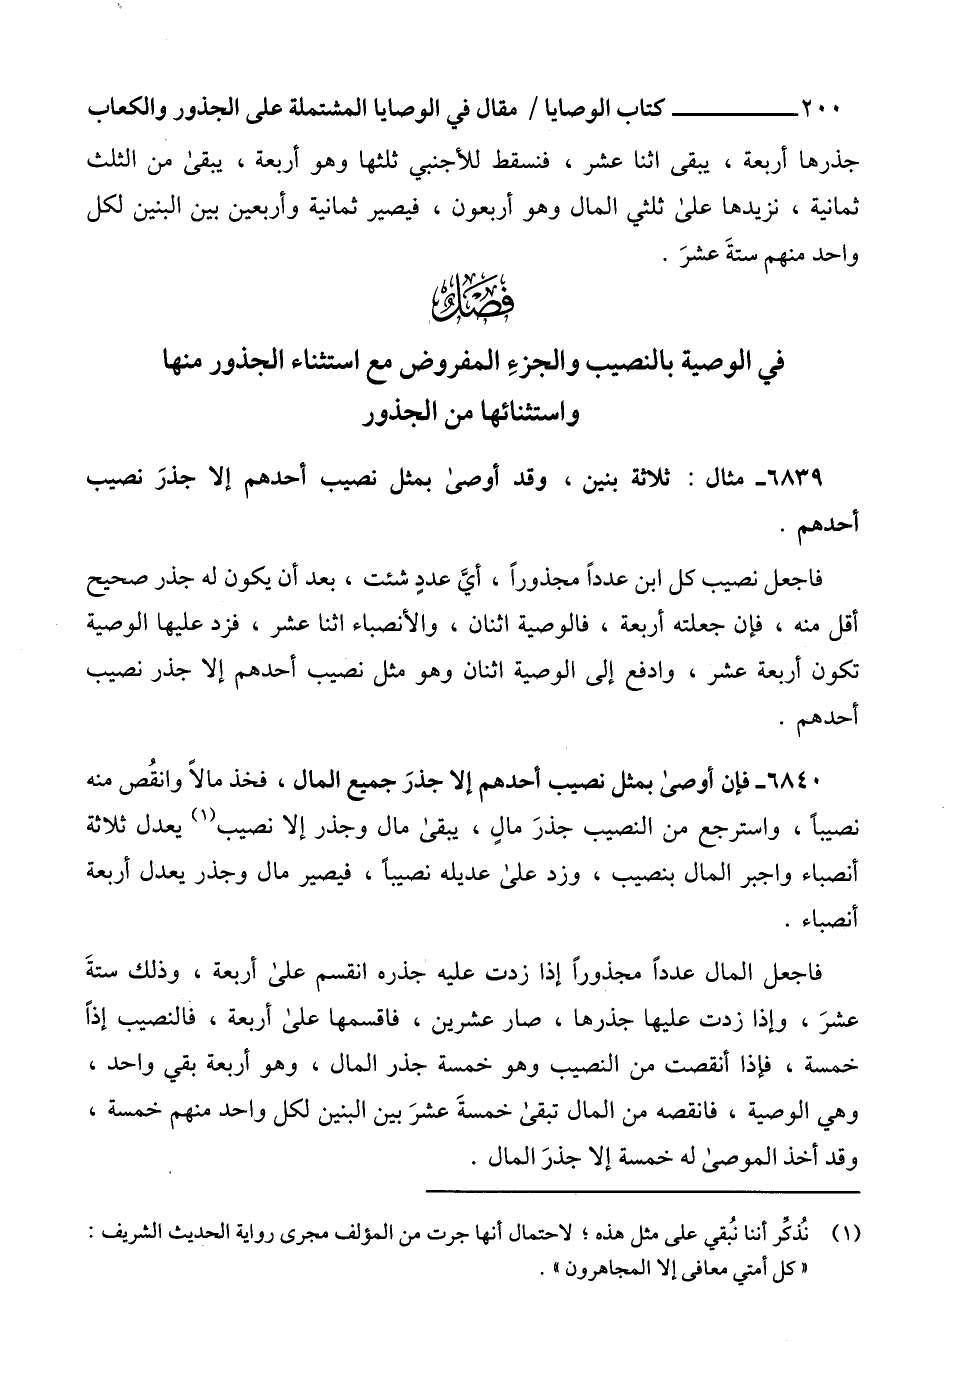 ٢٠٠ـــــــــــــ كتاب الوصايا / مقال في الوصايا المشتملة على الجذور والكعاب
جذرها أربعة ، يبقى اثنا عشر ، فنسقط للأجنبي ثلثها وهو أربعة ، يبقىٰ من الثلث
ثمانية ، نزيدها علىٰ ثلثي المال وهو أربعون ، فيصير ثمانية وأربعين بين البنين لكل
واحد منهم ستةَ عشرَ .
فصل
في الوصية بالنصيب والجزءِ المفروض مع استثناء الجذور منها
واستثنائها من الجذور
٦٨٣٩ـ مثال : ثلاثة بنين ، وقد أوصىٰ بمثل نصيب أحدهم إلا جذرَ نصيب
أحدهم .
فاجعل نصيب كل ابن عدداً مجذوراً ، أيَّ عددٍ شئت ، بعد أن يكون له جذر صحيح
أقل منه ، فإن جعلته أربعة ، فالوصية اثنان ، والأنصباء اثنا عشر ، فزد عليها الوصية
تكون أربعة عشر ، وادفع إلى الوصية اثنان وهو مثل نصيب أحدهم إلا جذر نصيب
أحدهم .
٦٨٤٠ـ فإن أوصىٰ بمثل نصيب أحدهم إلا جذرَ جميع المال ، فخذ مالاً وانقُص منه
نصيباً ، واسترجع من النصيب جذرَ مالٍ ، يبقىٰ مال وجذر إلا نصيب(١) يعدل ثلاثة
أنصباء واجبر المال بنصيب ، وزد علىٰ عديله نصيباً ، فيصير مال وجذر يعدل أربعة
أنصباء .
فاجعل المال عدداً مجذوراً إذا زدت عليه جذره انقسم علىٰ أربعة ، وذلك ستةَ
عشرَ ، وإذا زدت عليها جذرها ، صار عشرين ، فاقسمها علىٰ أربعة ، فالنصيب إذاً
خمسة ، فإذا أنقصت من النصيب وهو خمسة جذر المال ، وهو أربعة بقي واحد ،
وهي الوصية ، فانقصه من المال تبقىٰ خمسةَ عشرَ بين البنين لكل واحد منهم خمسة ،
وقد أخذ الموصىٰ له خمسة إلا جذرَ المال .
(١) نُذكِّر أننا نُبقي على مثل هذه ؛ لاحتمال أنها جرت من المؤلف مجرى رواية الحديث الشريف :
« كل أمتي معافى إلا المجاهرون » .